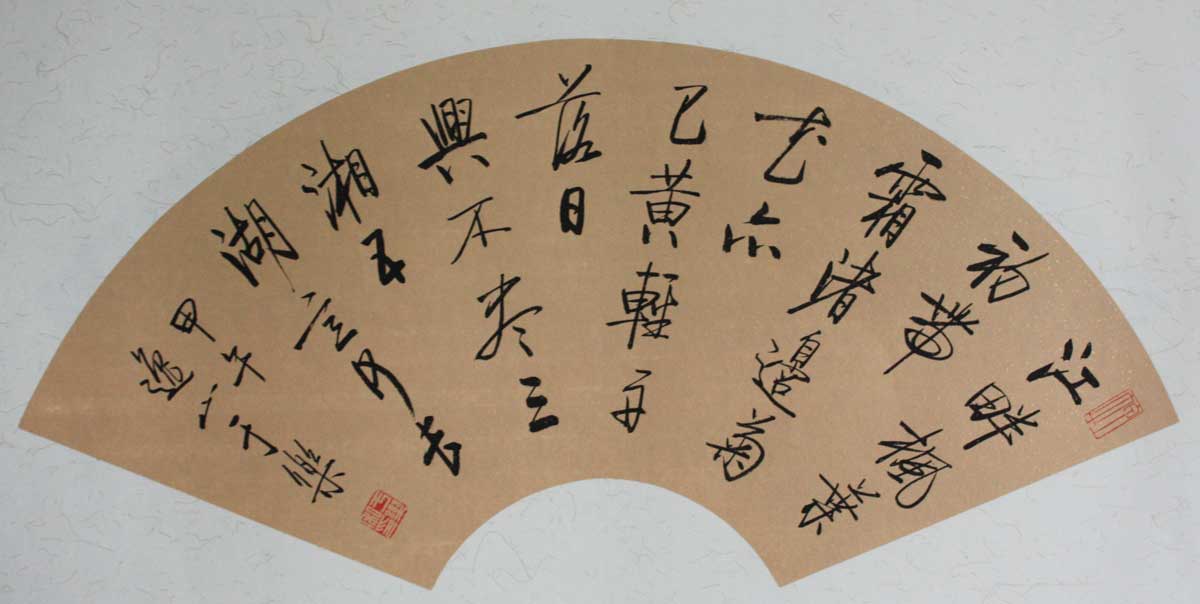 江畔楓葉
初帶
霜渚邊菊
花亦
已黃輕舟
落日
興不盡三
湘五
湖意何長
甲午